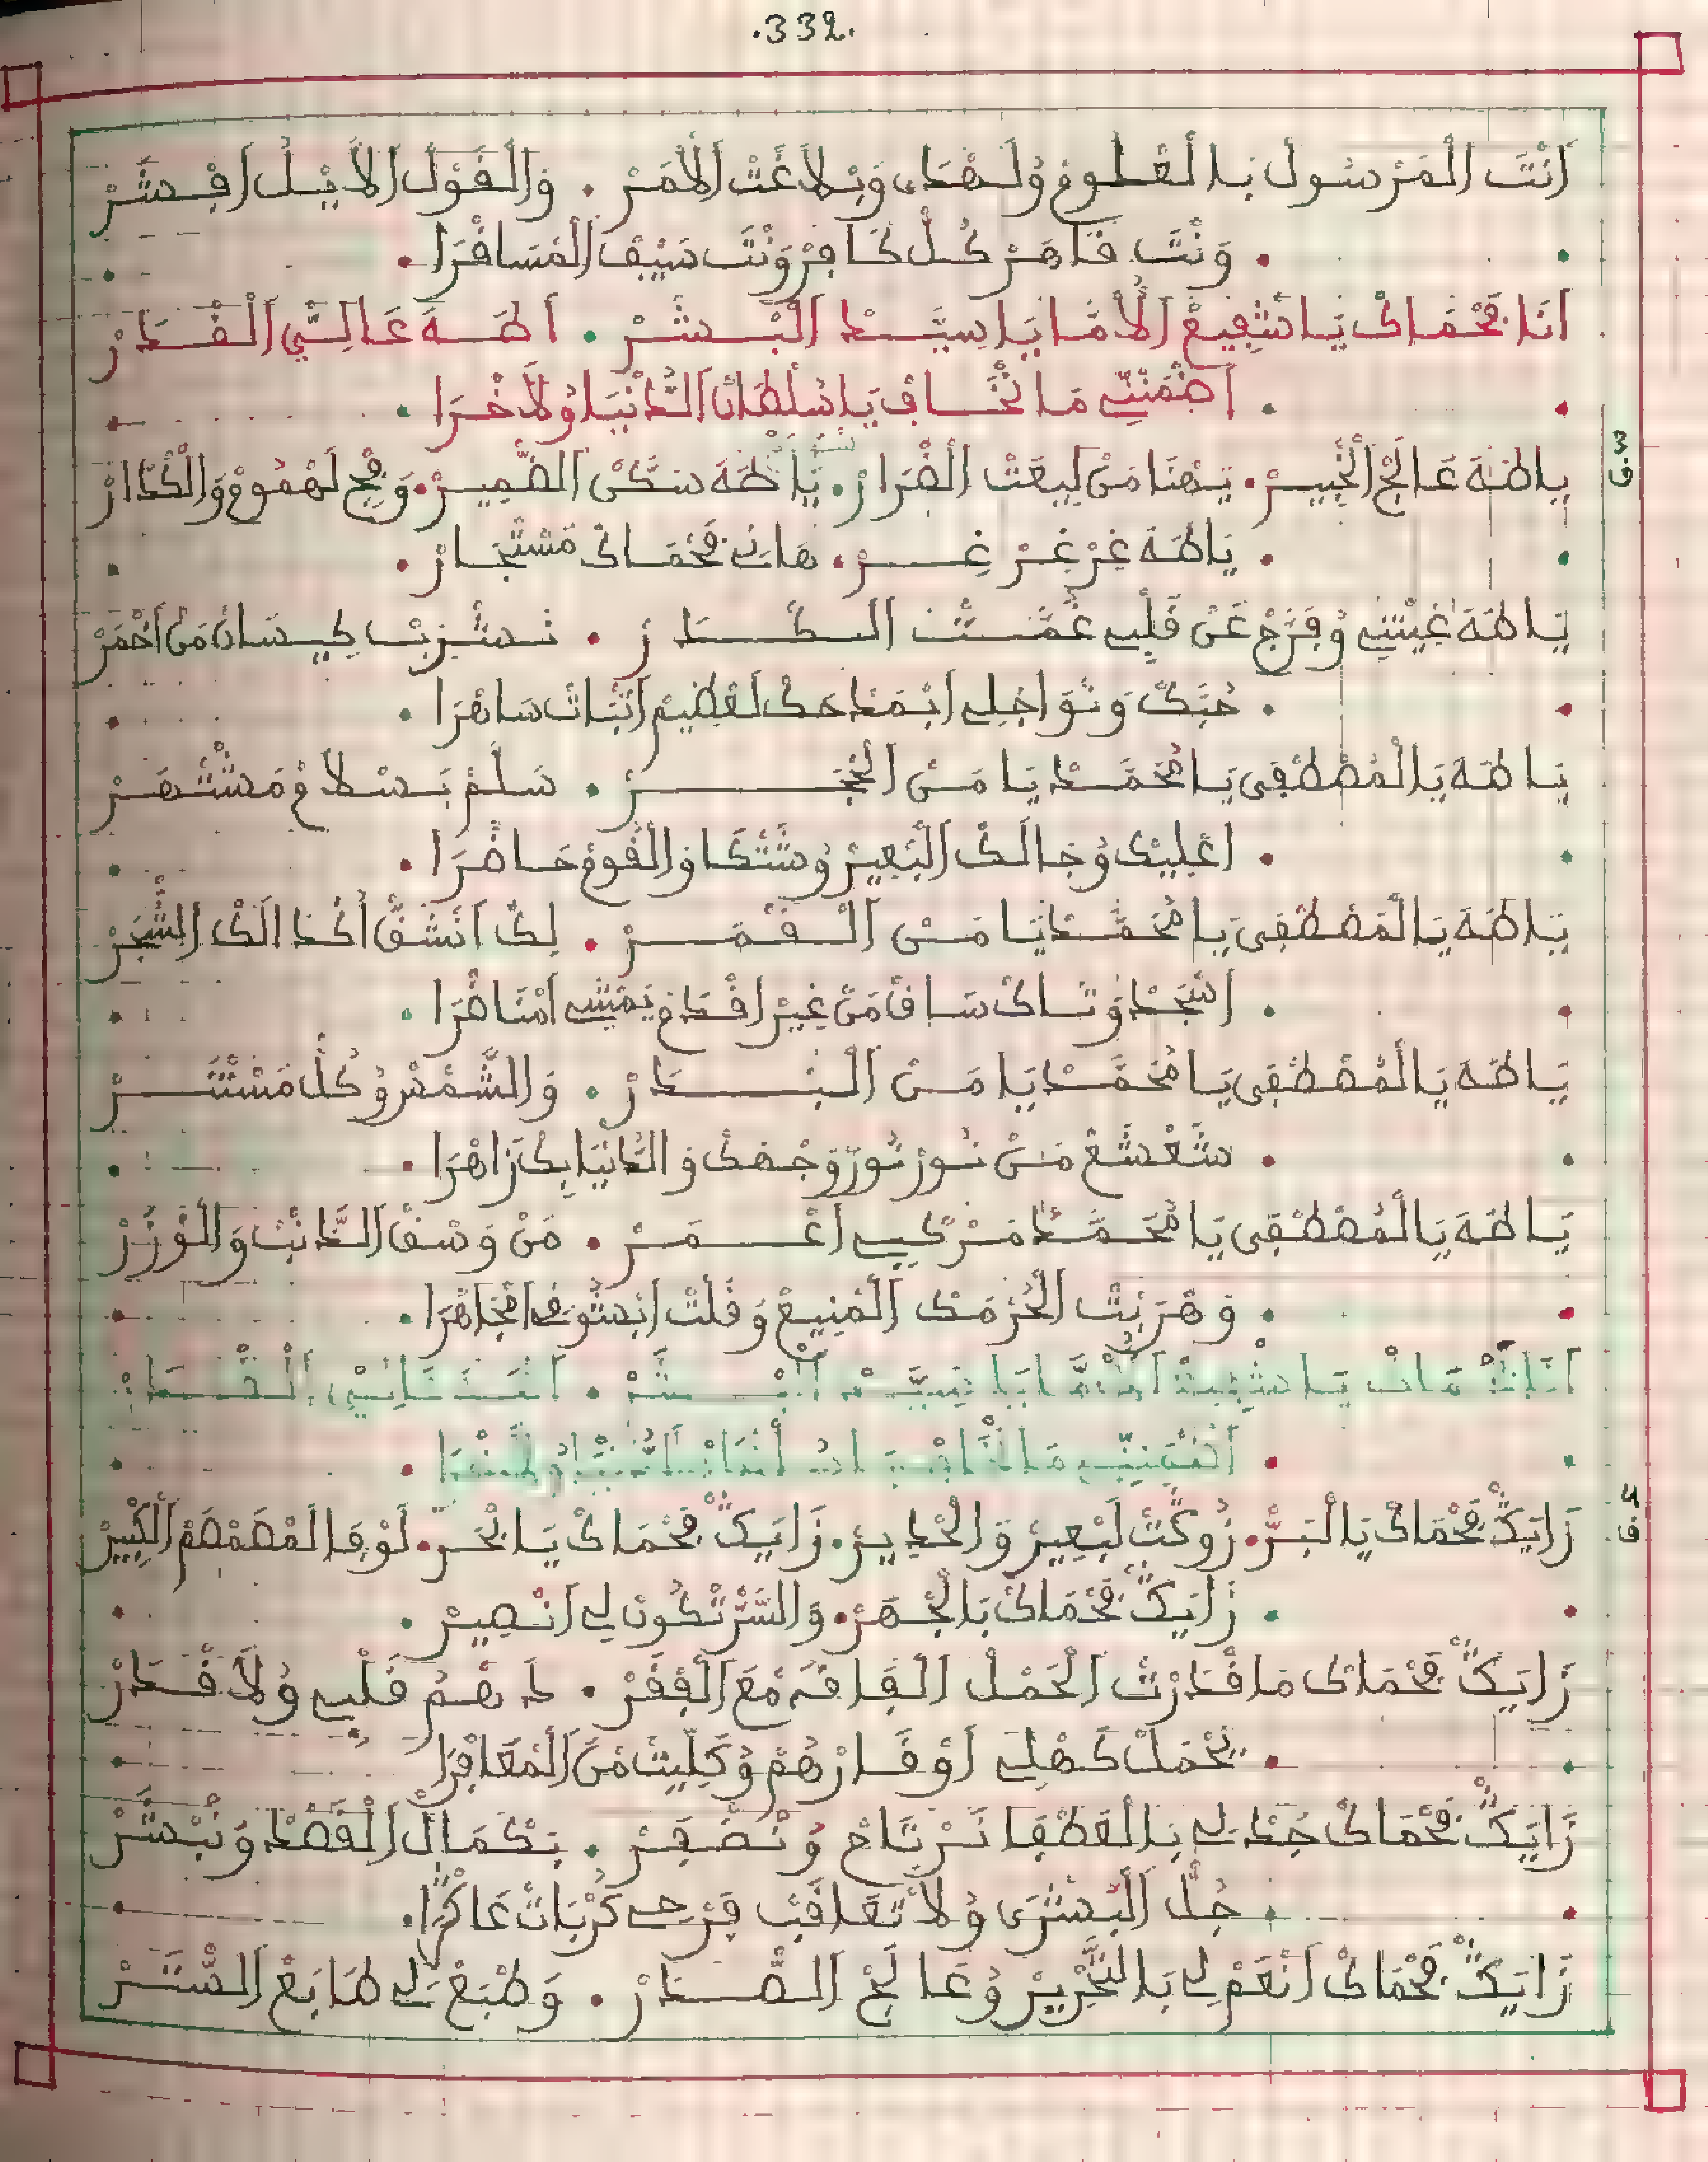 .332.
اَنْتَ اَلْمَرْسُول بَالْعْلُومْ وُلَهْدَاى وَبْلاَغَتْ اَلاَمَرْ . وَالْقَوْلْ اَلاَيْلْ اَفِيشَرْ
. وَنْتَ قَاهَرْ كُلْ كَافِرْ وَنْتَ سَيْفْ اَلْمْسَافْرَا .
اَنَا فَحْمَاكْ يَا شْفِيعْ اَلاُمَّا يَا سِيَّدْ اَلْبْشَرْ . اَطَهَ عَالِي اَلْقْدَرْ
. اَضْمَنِّي مَا نْخَافْ يَا سُلْطَانْ اَلدُّنْيَا وُلاَخْرَا .
3 ق
يَا طَهَ عَالَجْ اَلْخْبِيرْ . يَهْنَا مَنْ لِيعَتْ اَلضْرَارْ . يَا طَهَ سَكَّنْ اَلضْمِيرْ . وَفَجِّ لَهْمُومْ وَالْكْدَارْ
. يَا طَهَ غِرْ غِرْ غِرْ . هَانِي فَحْمَاكْ مَسْتْجَارْ .
يَا طَهَ غِيثْنِي وُفَرَّجْ عَنْ قَلْبِي غُمَّتْ اَلكْدَرْ . نَشْرَبْ كِيسَانْ مَنْ اَحْمَرْ
. حُبَّكْ وَنْوَاجْلِي اَبْمَدَاحَكْ لَعْظِيمْ اَنْبَاتْ سَاهْرَا .
يَا طَهَ يَالْمُصْطَفَى يَا مُحَمَّدْ يَا مَنْ اَلْحْجَرْ . سَلَّمْ بَسْلاَمْ مَشْتْهَرْ
. اَعْلِيكْ وُجَالَكْ اَلْبْعِيرْ وُشْتْكَا وَالْقُومْ حَاضْرَا .
يَا طَهَ يَالْمُصْطَفَى يَا مُحَمَّدْ يَا مَنْ اَلْقْمَرْ . لِكْ اَنْشَقْ اُكْدَالَكْ اَلشْجَرْ
. اَسْجَدْ وَتَاكْ سَاقْ مَنْ غِيرْ اَقْدَمْ يَمْشِي اَمْنَاضْرَا .
يَا طَهَ يَالْمُصْطَفَى يَا مُحَمَّدْ يَا مَنْ اَلْبْدَرْ . وَالشَّمْسْ وُكُلْ مَسْتْتَرْ
. شَعْشَعْ مَنْ نُورْ نُورْ وَجْهَكْ وَالدُّنْيَا بِكْ زَاهْرَا .
يَا طَهَ يَالْمُصْطَفَى يَا مُحَمَّدْ مَرْكْبِي اَعْمَرْ . مَنْ وَسْقْ اَلدَّانْبْ وَالْوْزَرْ
. وَهْرَبْتْ اَلْحُرْمَكْ اَلْمْنِيعْ وَقُلْتْ
اَلْبْشَرْ .
4 ق
زَايَكْ فَحْمَاكْ يَالْبَرّْ . زُوكَّتْ لَبْعِيرْ وَالْجْدِيرْ . زَايَكْ فَحْمَاكْ يَا بْحَرْ . لَوْفَا لَمْطَمْطَمْ اَلْكْبِيرْ
. زَايَكْ فَحْمَاكْ بَالْجْهَرْ . وَالسَّرْ تْكُونْ لِي اَنْصِيرْ .
زَايَكْ فَحْمَاكْ مَا قْدَرْتْ اَلْحَمْلْ اَلْفَاقَه مْعَ اَلْفْقَرْ . لاَ هْمُمْ قَلْبِي وُلاَ قْدَرْ
. يَحْمَلْ كَهْلِي اَوْقَارْهُمْ وُكَلِّيتْ مَنْ اَلْمْعَافْرَا
زَايَكْ فَحْمَاكْ جُدْ لِي بَالْعَطْفَا نَرْتَاحْ وُنْضْفَرْ . بَكْمَالْ اَلْقَصْدْ وَنْبَشَّرْ
. جُلْ اَلْبُشْرَى وُلاَ تْعَاقَبْ فَرْحِي كُرْبَاتْ عَاكْرَا .
زَايَكْ فَحْمَاكْ اَنْعَمْ لِي بَالتَّحْرِيرْ وُعَالَجْ اَلصّْدَرْ . وَطْبَعْ لِي طَابَعْ اَلسّْتَرْ